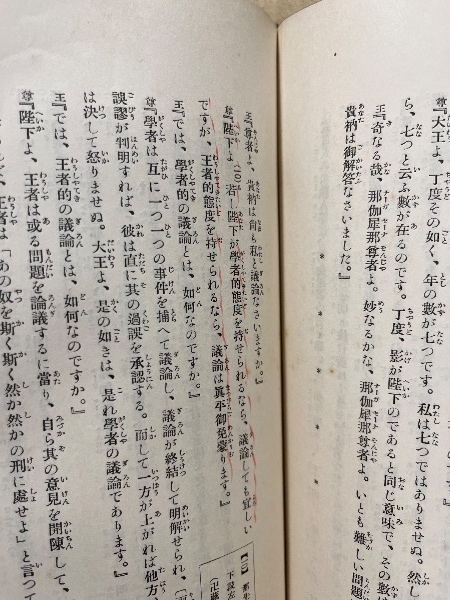 『大王よ、丁度その如く、年の數が七つです。私は七つではありませぬ。然し
ら、七つと云ふ數が在るのです。丁度、影が陛下のであると同じ意味で、その數は
王『奇なる哉、那伽犀那尊者よ。妙なるかな、那伽犀那尊者よ。いとも難しい問題
貴衲は御解答なさいました。』
* * * * *
王『尊者よ、貴衲は尙も私と議論なさいますか。』
尊『陛下よ、(10)若し陛下が學者的態度を持せられるなら、議論しても宜しい
ですが、王者的態度を持せられるなら、議論は眞平御免蒙ります。』
王『では、學者的の議論とは、如何なのですか。』
尊『學者は互に一つ一つの事件を捕へて議論し、議論が終結して明解せられ、
誤謬が判明すれば、彼は直に其の過誤を承認する。而して一方が上がれば他方
は決して怒りませぬ。大王よ、是の如きは、是れ學者の議論であります。』
王『では、王者的の議論とは、如何なのですか。』
尊『陛下よ、王者は或る問題を論議するに當り、自ら其の意見を開陳して、
「あの奴を斯く斯く然か然かの刑に處せよ」と言つて